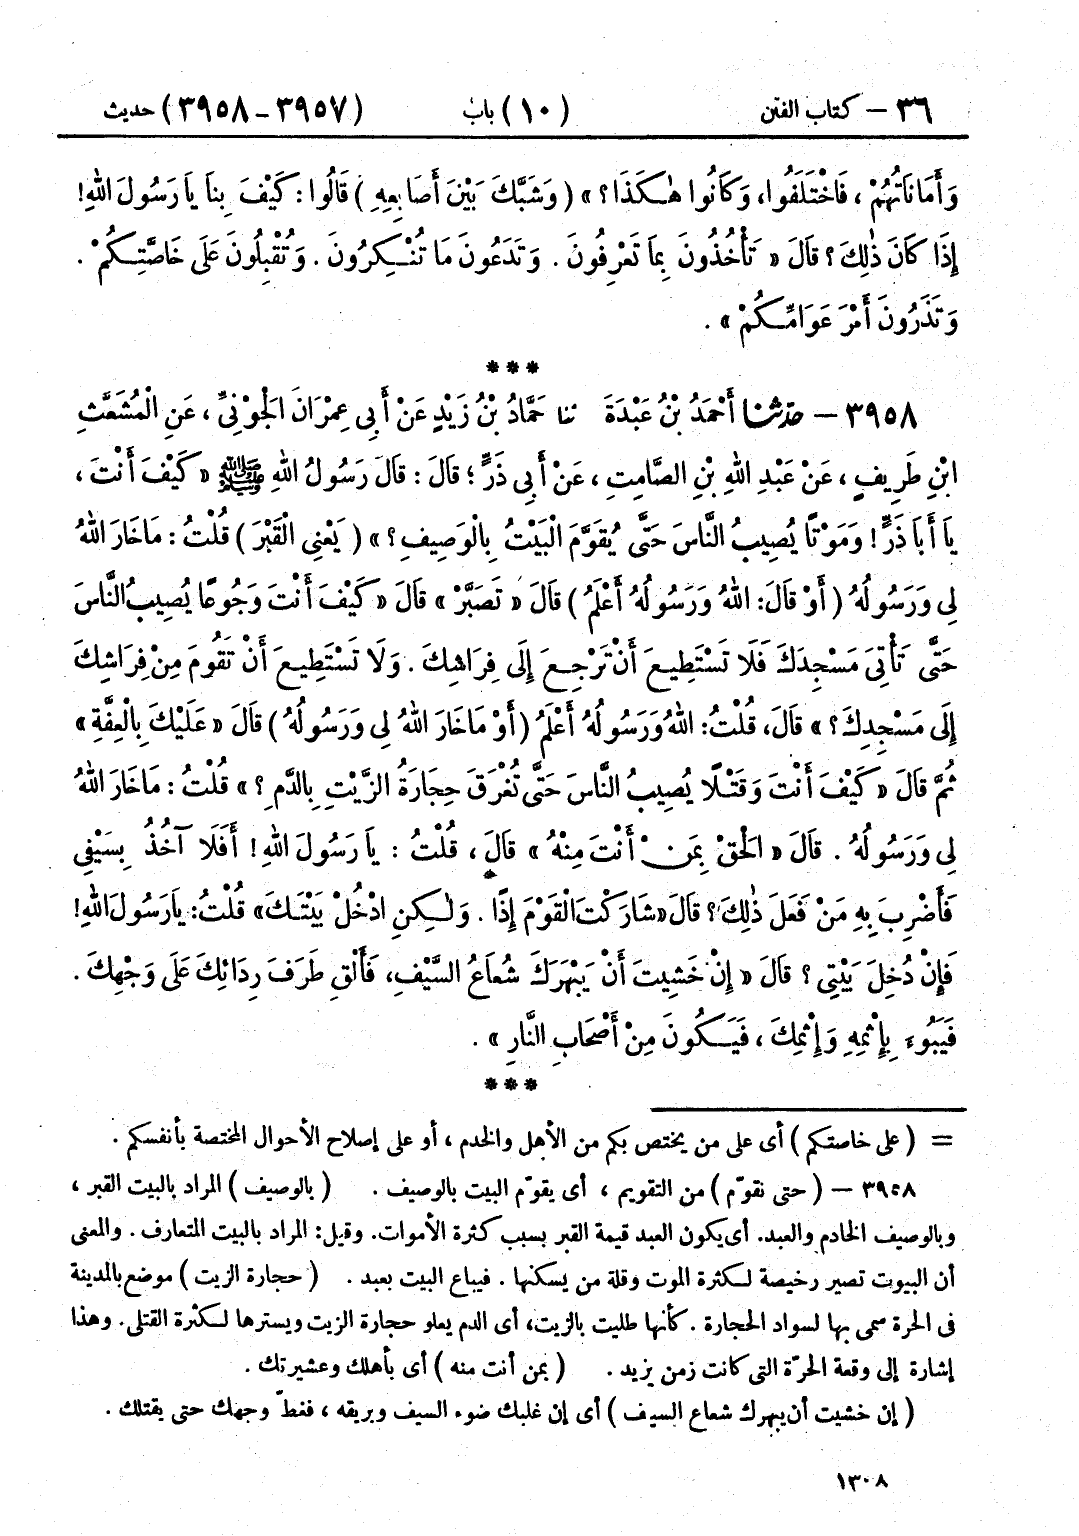 ٣٦ – كتاب الفتن (١٠) باب (٣٩٥٧–٣٩٥٨) حديث
وَأَمَانَاتُهُمْ ، فَاخْتَلَفُوا، وَكَانُوا هٰكَذَا؟ » ( وَشَبَّكَ بَيْنَ أَصَابِعِهِ ) قَالُوا : كَيْفَ بِنَا يَا رَسُولَ اللهِ!
إِذَا كَانَ ذٰلِكَ ؟ قَالَ « تَأْخُذُونَ بِمَا تَعْرِفُونَ . وَتَدَعُونَ مَا تُنْكِرُونَ . وَتُقْبِلُونَ عَلَى خَاصَّتِكُمْ .
وَتَذَرُونَ أَمْرَ عَوَامِّكُمْ » .
***
٣٩٥٨ – حَدَّثَنَا أَحْمَدُ بْنُ عَبْدَةَ ثنا حَمَّادُ بْنُ زَيْدٍ عَنْ أَبِي عِمْرَانَ الْجَوْنِيِّ ، عَنِ الْمُشَعَّثِ
ابْنِ طَرِيفٍ ، عَنْ عَبْدِ اللهِ بْنِ الصَّامِتِ ، عَنْ أَبِي ذَرٍّ ؛ قَالَ : قَالَ رَسُولُ اللهِ ﷺ « كَيْفَ أَنْتَ ،
يَا أَبَا ذَرٍّ ! وَمَوْتًا يُصِيبُ النَّاسَ حَتَّى يُقَوَّمَ الْبَيْتُ بِالْوَصِيفِ ؟ » ( يَعْنِي الْقَبْرَ ) قُلْتُ : مَا خَارَ اللهُ
لِي وَرَسُولُهُ ( أَوْ قَالَ: اللهُ وَرَسُولُهُ أَعْلَمُ ) قَالَ « تَصَبَّرْ » قَالَ « كَيْفَ أَنْتَ وَجُوعًا يُصِيبُ النَّاسَ
حَتَّى تَأْتِيَ مَسْجِدَكَ فَلَا تَسْتَطِيعَ أَنْ تَرْجِعَ إِلَى فِرَاشِكَ . وَلَا تَسْتَطِيعَ أَنْ تَقُومَ مِنْ فِرَاشِكَ
إِلَى مَسْجِدِكَ ؟ » قَالَ، قُلْتُ: اللهُ وَرَسُولُهُ أَعْلَمُ ( أَوْ مَا خَارَ اللهُ لِي وَرَسُولُهُ ) قَالَ « عَلَيْكَ بِالْعِفَّةِ »
ثُمَّ قَالَ « كَيْفَ أَنْتَ وَقَتْلًا يُصِيبُ النَّاسَ حَتَّى تُغْرَقَ حِجَارَةُ الزَّيْتِ بِالدَّمِ ؟ » قُلْتُ : مَا خَارَ اللهُ
لِي وَرَسُولُهُ . قَالَ « الْحَقْ بِمَنْ أَنْتَ مِنْهُ » قَالَ ، قُلْتُ : يَا رَسُولَ اللهِ ! أَفَلَا آخُذُ بِسَيْفِي
فَأَضْرِبَ بِهِ مَنْ فَعَلَ ذٰلِكَ؟ قَالَ «شَارَكْتَ الْقَوْمَ إِذًا . وَلٰكِنِ ادْخُلْ بَيْتَكَ» قُلْتُ: يَا رَسُولَ اللهِ!
فَإِنْ دُخِلَ بَيْتِي ؟ قَالَ « إِنْ خَشِيتَ أَنْ يَبْهَرَكَ شُعَاعُ السَّيْفِ، فَأَلْقِ طَرَفَ رِدَائِكَ عَلَى وَجْهِكَ .
فَيَبُوءَ بِإِثْمِهِ وَإِثْمِكَ ، فَيَكُونَ مِنْ أَصْحَابِ النَّارِ » .
***
= ( على خاصتكم ) أى على من يختص بكم من الأهل والخدم ، أو على إصلاح الأحوال المختصة بأنفسكم .
٣٩٥٨ – ( حتى نقوّم ) من التقويم ، أى يقوّم البيت بالوصيف . ( بالوصيف ) المراد بالبيت القبر ،
وبالوصيف الخادم والعبد. أى يكون العبد قيمة القبر بسبب كثرة الأموات. وقيل: المراد بالبيت المتعارف . والمعنى
أن البيوت تصير رخيصة لكثرة الموت وقلة من يسكنها . فيباع البيت بعبد . ( حجارة الزيت ) موضع بالمدينة
فى الحرة سمى بها لسواد الحجارة . كأنها طليت بالزيت، أى الدم يعلو حجارة الزيت ويسترها لكثرة القتلى. وهذا
إشارة إلى وقعة الحرّة التى كانت زمن يزيد . ( بمن أنت منه ) أى بأهلك وعشيرتك .
( إن خشيت أن يبهرك شعاع السيف ) أى إن غلبك ضوء السيف وبريقه ، فغطّ وجهك حتى يقتلك .
١٣٠٨